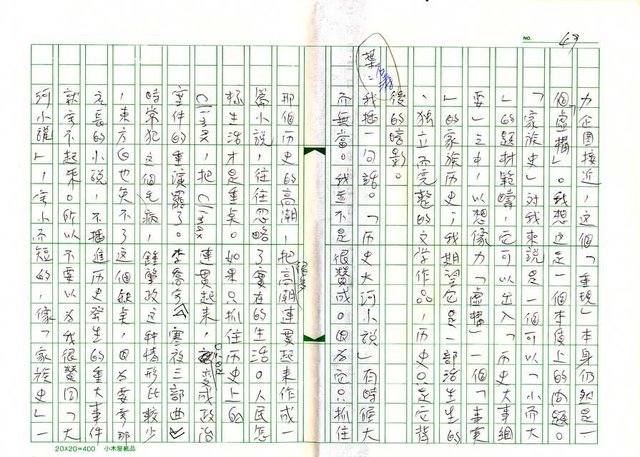 NO. 49
力企圖接近，這個「重現」本身仍然是一
個「虛構」。我想這是一個本質上的問題。
「家族史」對我來說是一個可以「小而大
」的題材範疇，它可以出入「歷史大事綱
要」之中，以想像力「虛構」一個「真實
」的家族历史；我期望它是一部活生生的
、独立而完整的文学作品，历史只是它背
後的暗影。
葉：我插一句話。「历史大河小說」有時候大
而無當。我並不是很贊成。因為它只抓住
那個历史的高潮，把高潮連貫起来作成一
篇小說，往往忽略了實在的生活。人民怎
樣生活才是重点。如果只抓住历史上的
把 連貫起来，變成政治
事件的重演罷了。李喬 寒夜三部曲
時常犯这個毛病，鍾肇政这种情形比較少
，東方白也免不了这個缺点，因為要寫那
麼長的小說，不插進历史發生的重大事件
就寫不起来。所以不要以為我很贊同「大
河小說」，寧小而短的，像「家族史」一
20X20=400 小木屋紙品